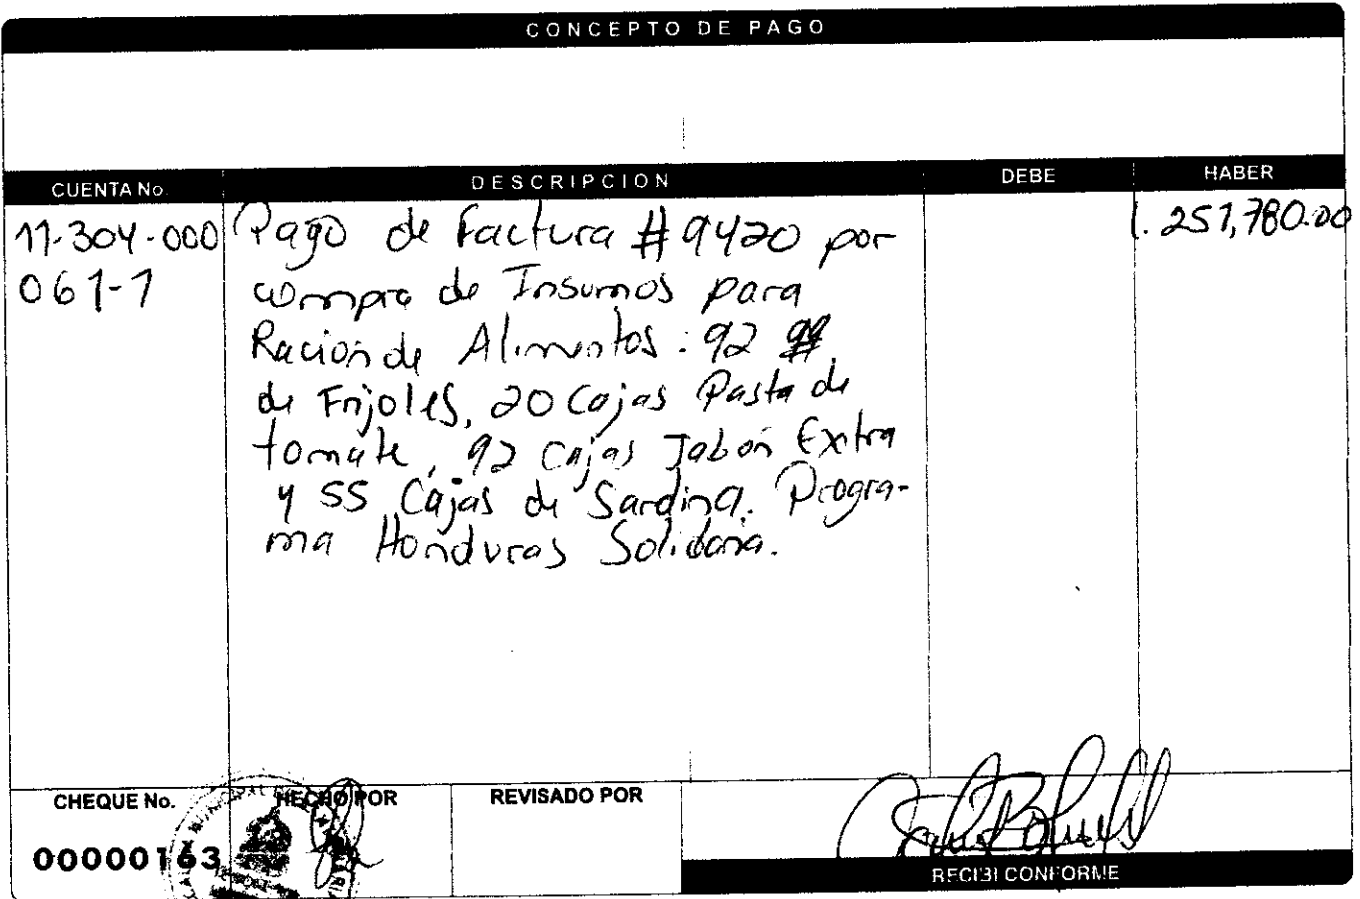 CONCEPTO DE PAGO
CUENTA No. DESCRIPCION DEBE HABER
11-304-000 Pago de Factura # 9420 por L. 251,780.00
061-1 compra de Insumos para
Ración de Alimentos: 92
de Frijoles, 20 Cajas Pasta de
tomate, 92 Cajas Jabón Extra
y 55 Cajas de Sardina. Progra-
ma Honduras Solidaria.
CHEQUE No. HECHO POR REVISADO POR
00000163
RECIBI CONFORME